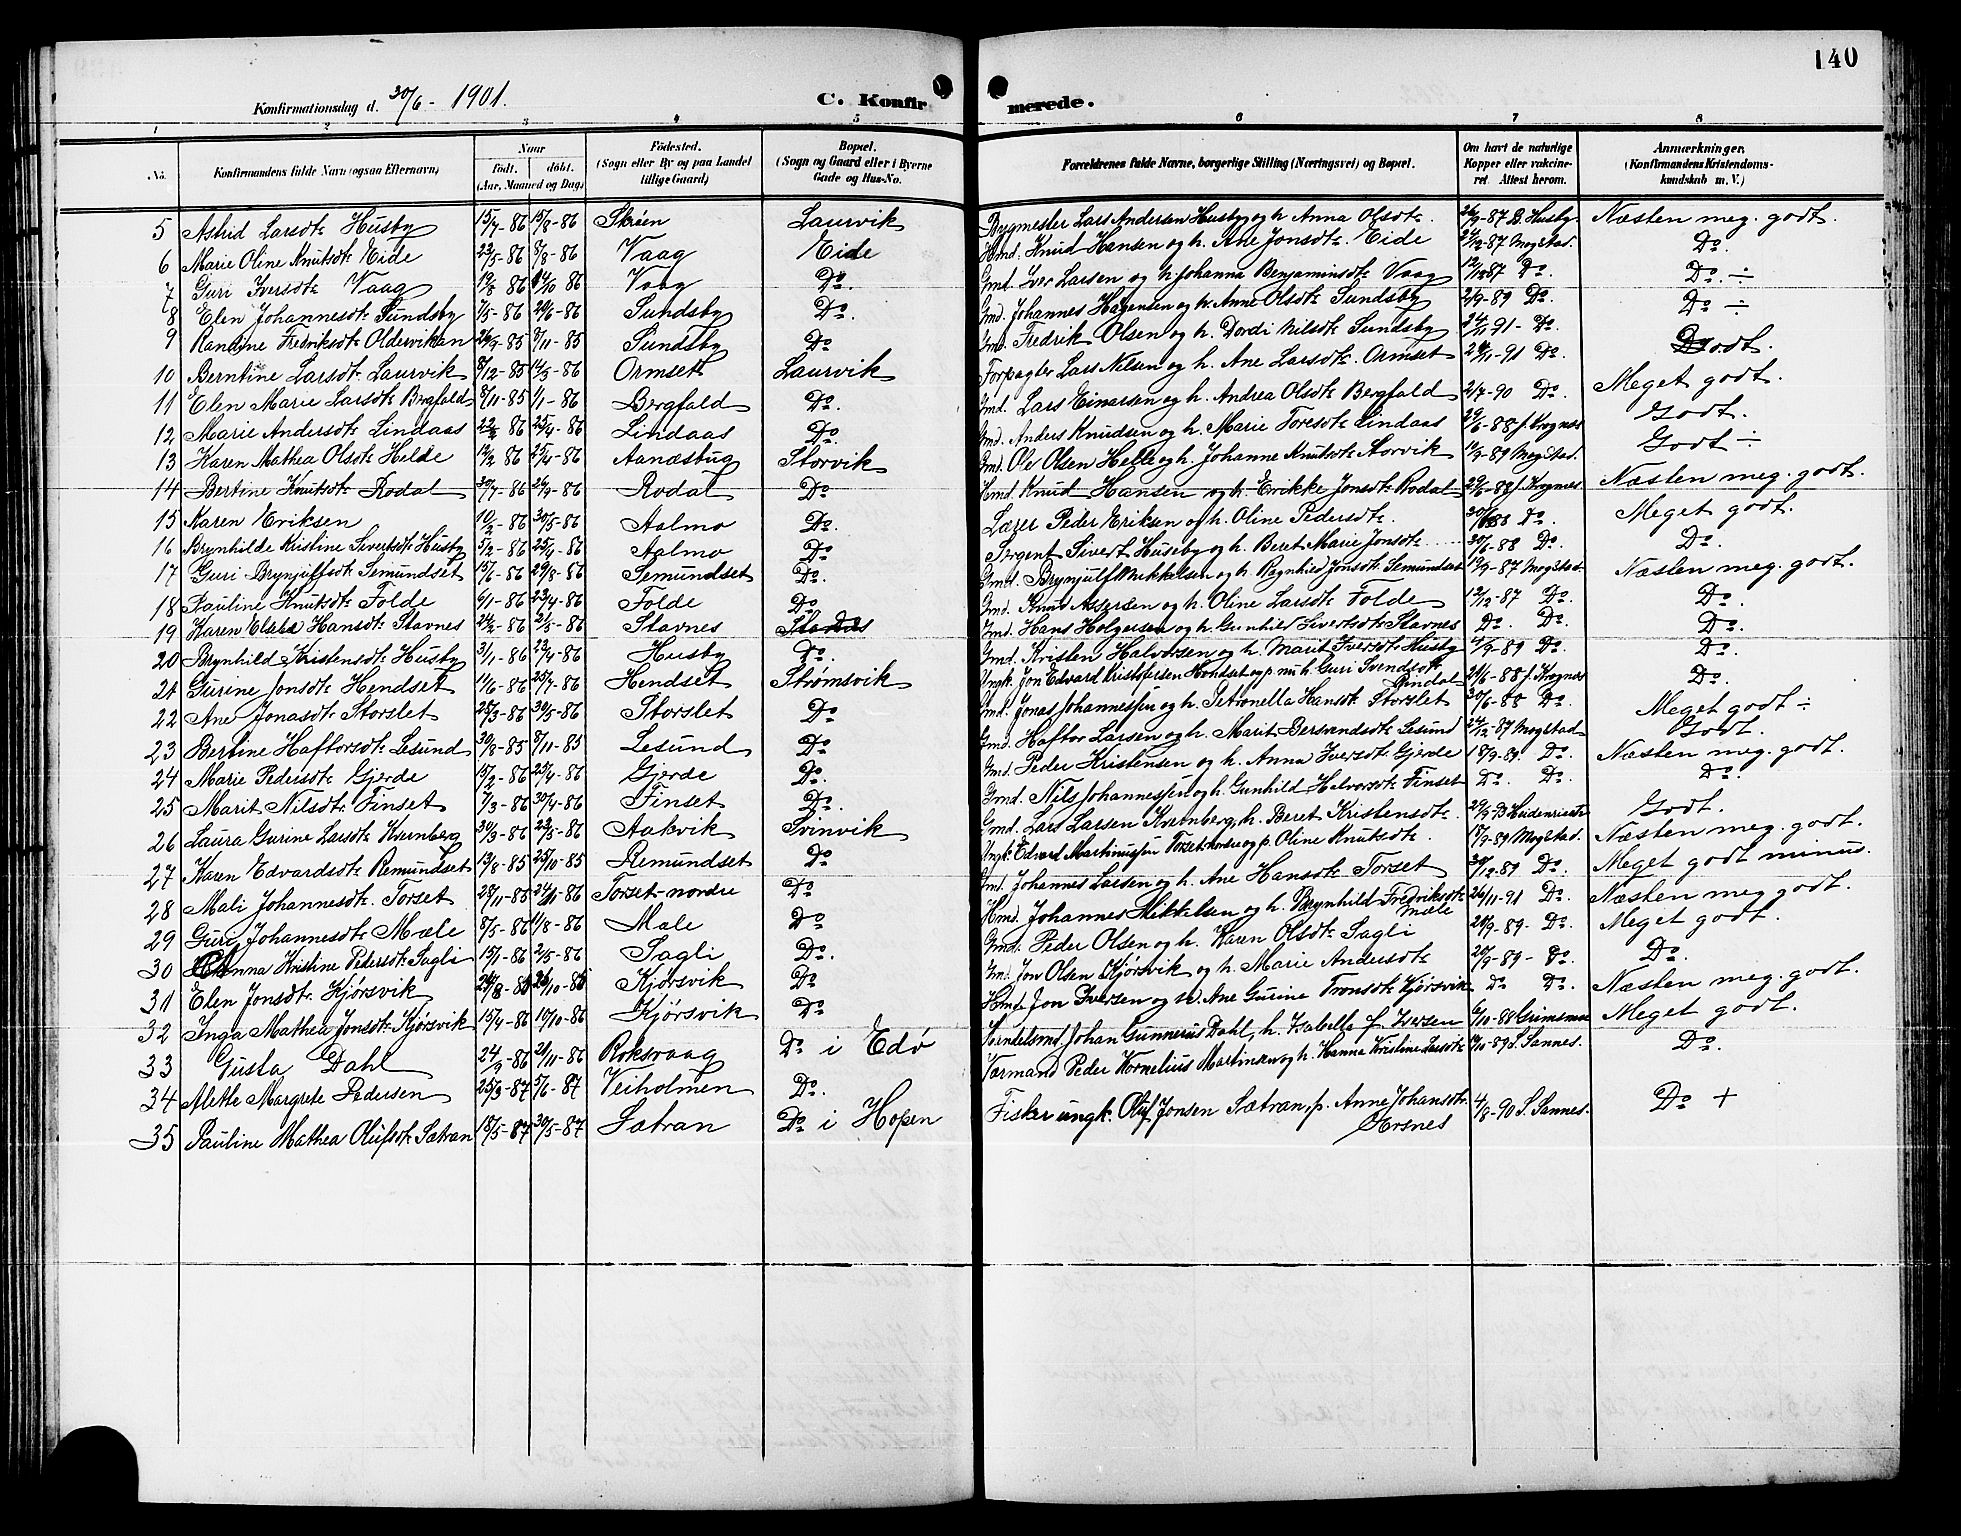 140
Konfirmationsdag d. 30/6 - 1901. C. Konfirmerede.
1 2 3 4 5 6 7 8
No. Konfirmandens fulde Navn (ogsaa Efternavn) Naar født. døbt. (Aar, Maaned og Dag) Fødested. (Sogn eller By og paa Landet tillige Gaard) Bopæl. (Sogn og Gaard eller i Byerne Gade og Hus-No. Forældrenes fulde Navne, borgerlige Stilling (Næringsvei) og Bopæl. Om havt de naturlige Kopper eller vakcineret. Attest herom. Anmærkninger, (Konfirmandens Kristendomskundskab m. V.)
5 Astrid Larsdt. Husby 15/7-86 15/8-86 Skröen Laurvik Bygmester Lars Andersen Husby og h. Anna Olsdt. 26/9-87 B. Husby. Næsten meg. godt.
6 Marie Oline Knutsdt. Eide 23/5-86 8/8-86 Vaag Eide Hmd. Knud Hansen og h. Ane Jonsdt. Eide 24/12-87 Mogstad. Do.
7 Guri Iversdt. Vaag Vaag Do. Gmd. Iver Larsen og h. Johanna Benjaminsdt. Vaag 12/12 87 Do. Do. ÷
8 Elen Johannesdt. Sundsby 7/5-86 20/6-86 Sundsby Do. Gmd. Johannes Hagensen og h. Anne Olsdt. Sundsby 2/9-89 Do. Do ÷
9 Randine Fredriksdt. Oldervikan 26/9-85 8/11-85 Sundsby Do Gmd. Fredrik Olsen og h. Dordi Nilsdt. Sundsby 24/11-91- Do. Godt.
10 Berntine Larsdt. Laurvik 8/12-85 14/5-86 Ormset Laurvik Forpagter Lars Nilsen og h. Ane Larsdt. Ormset 24/11-91 Do. Meget godt.
11 Elen Marie Larsdt. Bergfald 8/11-85 1/1-86 Bergfald Do. Gmd. Lars Einarsen og h. Andrea Olsdt. Bergfald 2/7-90 Do. Godt.
12 Marie Andersdt. Lindaas 25/4-86 Lindaas Do. Gmd. Anders Knudsen og h. Marie Toresdt. Lindaas 29/6-88 f. Krognes Godt ÷
13 Karen Mathea Olsdt. Helde 12/2 86 25/4-86 Aanæsbug Storvik Gmd. Ole Olsen Helle og h. Johanne Knutsdt. Storvik 12/9-89 Mogstad.
14 Bertine Knutsdt. Rodal 30/7-86 26/9-86 Rodal Do Hmd. Knud Hansen og h. Erikke Jonsdt. Rodal 29/6-88 f. Krognes Næsten meg. godt.
15 Karen Eriksen 10/3-86 30/5-86 Aalmo Do. Lærer Peder Eriksen og h. Oline Pedersdt. 30/6 88 Do. Meget godt.
16 Brynhilde Kristine Sivertsdt. Husby 5/2-86 25/4-86 Aalmo Do Sergent Sivert Huseby og h. Beret Marie Jonsdt. 30/6-88 Do. Do.
17 Guri Brynjulfsdt. Semundset 15/6-86 29/8-86 Semundset Do. Gmd. Brynjulf Mikkelsen og h. Ragnhild Jonsdt. Semundset 19/9-87 Mogstad. Næsten meg. godt.
18 Pauline Knutsdt. Folde 6/1-86 23/4-86 Folde Do Gmd. Knud Assersen og h. Oline Larsdt. Folde 12/12-87 Do. Do.
19 Karen Hansdt. Stavnes 24/2-86 2/5-86 Stavnes Stavnes Gmd. Hans Holgersen og h. Gunhild Sivertsdt. Stavnes Do. Do. Do.
20 Brynhild Kristensdt. Husby 31/1-86 23/4-86 Husby Do. Gmd. Kristen Halvorsen og h. Marit Iversdt. Husby 4/9-89 Do. Do.
21 Gurine Jonsdt. Hendset 11/6-86 25/7-86 Hendset Strömsvik Ungk. Jon Edvard Kristofersen Hendset og p. nu h. Guri Svendsdt. Rindal 21/6-88 f. Krognes Do.
22 Ane Jonasdt. Storslet 25/3-86 30/5-86 Storslet Do Gmd. Jonas Johannessen og h. Petronella Hansdt. Storslet 30/6-88 Do. Meget godt ÷
23 Bertine Haftorsdt. Lesund 30/8-85 8/11-85 Lesund Do Gmd. Haftor Larsen og h. Marit Bersvendsdt. Lesund 24/12-87 Mogstad Godt.
24 Marie Pedersdt. Gjerde 15/2-86 25/4-86 Gjerde Do. Gmd. Peder Kristensen og h. Anna Iversdt. Gjerde 18/9-89. Do. Næsten meg. godt.
25 Marit Nilsdt. Finset 7/3-86 30/4-86 Finset Do. Gmd. Nils Johannessen og h. Gunhild Halvorsdt. Finset Do. Do. Do.
26 Laura Gurine Larsdt. Kvernberg 30/3-86 23/5-86 Aakvik Svinvik Gmd. Lars Larsen Kvernberg, h. Beret Kristensdt. Godt.
27 Karen Edvardsdt. Remundset 13/8-85 25/10-85 Remundset Do Ungk. Edvard Martinussen Torset nordre og p. Oline Knutsdt. 18/9-89 Mogstad. Næsten meg. godt.
28 Mali Johannesdt. Torset Torset-nordre Do Gmd. Johannes Larsen og h. Ane Hansdt. Torset 30/12-89 Do. Meget godt minus.
29 Guri Johannesdt. Mæle 8/5-86 1/8-86 Mæle Do Hmd. Johannes Mikkelsen og h. Brynhild Fredriksdt. Mæle 26/11-91 Do. Næsten meg godt.
30 Anna Kristine Pedersdt. Sagli 15/1-86 24/5-86 Sagli Do. Gmd. Peder Olsen og h. Karen Olsdt. Sagli 20/9-89- Do. Meget godt.
31 Elen Jonsdt. Kjörsvik Kjörsvik Do Gmd. Jon Olsen Kjörsvik og h. Marie Andersdt. 20/9-89- Do. Do.
32 Inga Mathea Jonsdt. Kjörsvik 15/4-86 10/10-86 Kjörsvik Do Hmd. Jon Iversen og h. Ane Gurine Tronsdt. Kjörsvik Do Do. Næsten meg. godt.
33 Gusta Dahl 24/9-86 21/11-86 Roksvaag Do i Edö Handelsmd. Johan Gunnerius Dahl, h. Isabella f. Iversen 6/10-88 Grimsmoe Meget godt.
34 Alette Margrete Pedersen 25/3-87 5/6-87 Veiholmen Do. Varmand Peder Kornelius Martinsen og h. Hanna Kristine Larsdt. 10/10-89 S. Sannes. Do.
35 Pauline Mathea Olufsdt. Sætran 18/5-87 30/5-87 Sætran Do i Hopen Fisker ungk. Oluf Jonsen Sætran, p. Anne Johansdt. Gorsnes 4/8-90 S. Sannes. Do +